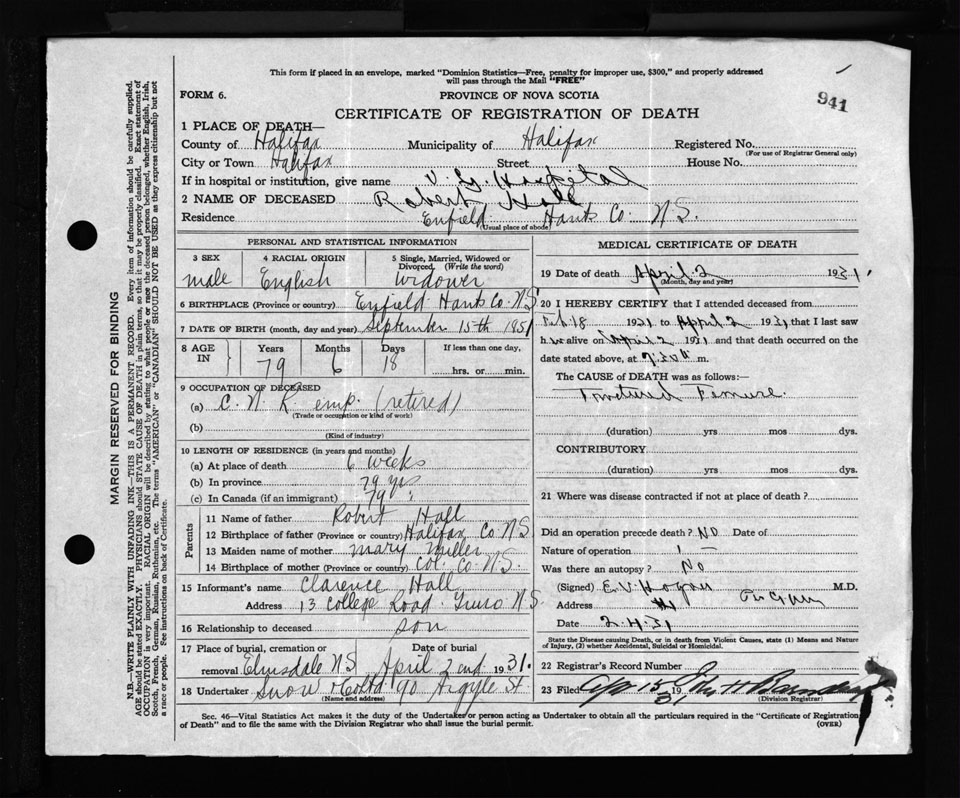 This form if placed in an envelope, marked "Dominion Statistics—Free, penalty for improper use, $300," and properly addressed
will pass through the Mail "FREE"
FORM 6.
PROVINCE OF NOVA SCOTIA
941
CERTIFICATE OF REGISTRATION OF DEATH
1 PLACE OF DEATH—
County of Halifax Municipality of Halifax Registered No.
(For use of Registrar General only)
City or Town Halifax Street House No.
If in hospital or institution, give name V. G. Hospital
2 NAME OF DECEASED Robert Hall
Residence Enfield Hants Co. N.S.
(Usual place of abode)
PERSONAL AND STATISTICAL INFORMATION
3 SEX 4 RACIAL ORIGIN 5 Single, Married, Widowed or
Divorced. (Write the word)
male English Widower
6 BIRTHPLACE (Province or country) Enfield Hants Co. N.S.
7 DATE OF BIRTH (month, day and year) September 15th 1851
8 AGE IN Years Months Days If less than one day,
79 6 18 hrs. or min.
9 OCCUPATION OF DECEASED
(a) C. N. R. emp. (retired)
(Trade or occupation or kind of work)
(b)
(Kind of industry)
10 LENGTH OF RESIDENCE (in years and months)
(a) At place of death 6 weeks
(b) In province 79 yrs
(c) In Canada (if an immigrant) 79 "
Parents
11 Name of father Robert Hall
12 Birthplace of father (Province or country) Halifax Co N.S.
13 Maiden name of mother Mary Miller
14 Birthplace of mother (Province or country) Col. Co. N.S.
15 Informant's name Clarence Hall
Address 13 College Road Truro N.S.
16 Relationship to deceased son
17 Place of burial, cremation or Date of burial
removal Elmsdale NS April 2nd 1931.
18 Undertaker Snow & Co Ltd 90 Argyle St
(Name and address)
MEDICAL CERTIFICATE OF DEATH
19 Date of death April 2 1931
(Month, day and year)
20 I HEREBY CERTIFY that I attended deceased from
Feb. 18 1931 to April 2 1931 that I last saw
him alive on April 2 1931 and that death occurred on the
date stated above, at 7.30 m.
The CAUSE OF DEATH was as follows:—
Fractured Femur.
(duration) yrs mos dys.
CONTRIBUTORY
(duration) yrs mos dys.
21 Where was disease contracted if not at place of death?
Did an operation precede death? NO Date of
Nature of operation
Was there an autopsy? No
(Signed) E. V. Hogan M.D.
Address
Date 2.4.31
State the Disease causing Death, or in death from Violent Causes, state (1) Means and Nature
of Injury, (2) whether Accidental, Suicidal or Homicidal.
22 Registrar's Record Number
23 Filed Apr 15 1931
(Division Registrar)
Sec. 46—Vital Statistics Act makes it the duty of the Undertaker or person acting as Undertaker to obtain all the particulars required in the "Certificate of Registration
of Death" and to file the same with the Division Registrar who shall issue the burial permit. (OVER)
MARGIN RESERVED FOR BINDING
N.B.—WRITE PLAINLY WITH UNFADING INK—THIS IS A PERMANENT RECORD. Every item of information should be carefully supplied.
AGE should be stated EXACTLY. PHYSICIANS should STATE CAUSE OF DEATH in plain terms, so that it may be properly classified. Exact statement of
OCCUPATION is very important. RACIAL ORIGIN will be described by stating to what people or race the deceased person belonged, whether English, Irish,
Scotch, French, German, Russian, Ruthenian, etc. The terms "AMERICAN" or "CANADIAN" SHOULD NOT BE USED as they express citizenship but not
a race or people. See instructions on back of Certificate.